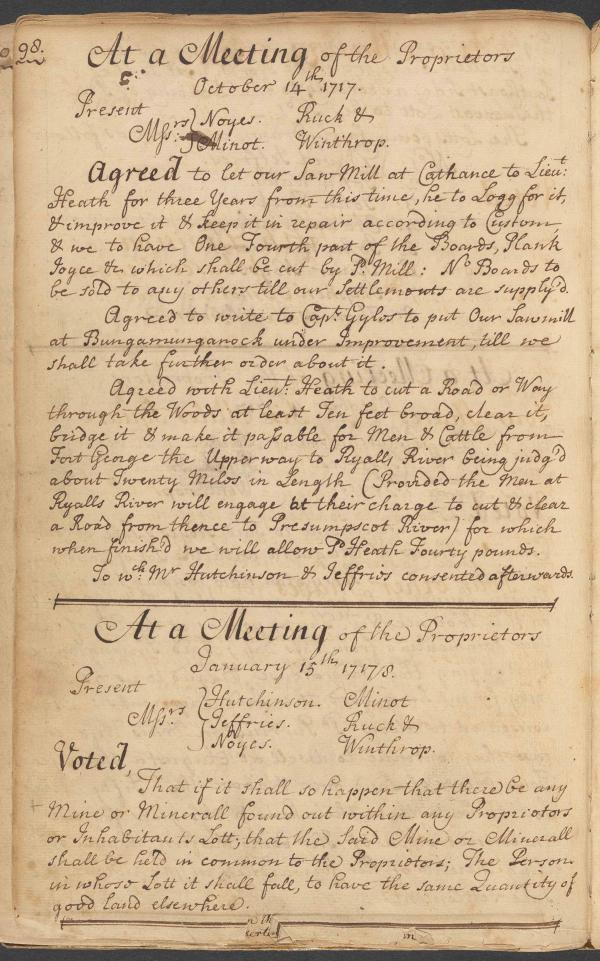 98.
At a Meeting of the Proprietors
October 14th 1717.
Present
Mssrs Noyes. Ruck &
Minot. Winthrop.
Agreed to let our Saw Mill at Cathance to Lieut:
Heath for three Years from this time, he to Logg for it,
& improve it & keep it in repair according to Custom,
& we to have One Fourth part of the Boards, Plank
Joyce &c which shall be cut by sd. Mill: No Boards to
be sold to any others till our Settlements are supply'd.
Agreed to write to Capt. Gyles to put Our Sawmill
at Bungamunganock under Improvement, till we
shall take further order about it.
Agreed with Lieut. Heath to cut a Road or Way
through the Woods at least Ten feet broad, clear it,
bridge it & make it passable for Men & Cattle from
Fort George the Upper way to Ryalls River being judg'd
about Twenty Miles in Length (Provided the Men at
Ryalls River will engage at their charge to cut & clear
a Road from thence to Presumpscot River) for which
when finish'd we will allow sd Heath Fourty pounds.
To wch. Mr Hutchinson & Jeffries consented afterwards.
At a Meeting of the Proprietors
January 15th 1717/8.
Present
Mssrs Hutchinson. Minot
Jeffries. Ruck &
Noyes. Winthrop.
Voted,
That if it shall so happen that there be any
Mine or Minerall found out within any Proprietors
or Inhabitants Lott, that the said Mine or Minerall
shall be held in common to the Proprietors; The Person
in whose Lott it shall fall, to have the same Quantity of
good land elsewhere.